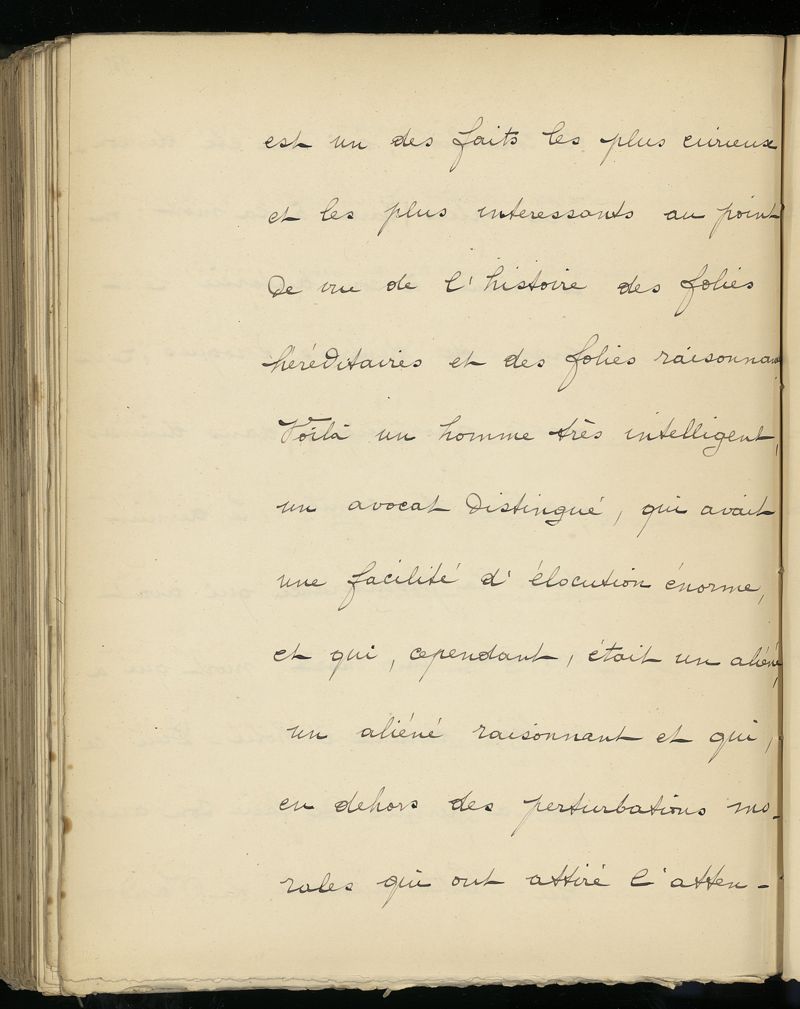 est un des faits les plus curieux
et les plus interessants au point
De vue de l'histoire des folies
héréditaires et des folies raisonnan
Voilà un homme très intelligent,
un avocat distingué, qui avait
une facilité d'élocution énorme,
et qui, cependant, était un aliéné,
un aliéné raisonnant et qui,
en dehors des perturbations mo-
rales qui ont attiré l'atten-